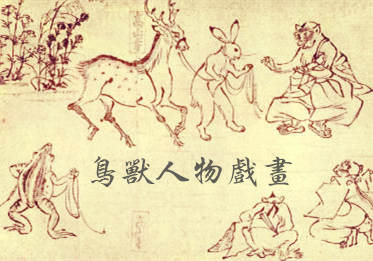 鳥獸人物戲畫